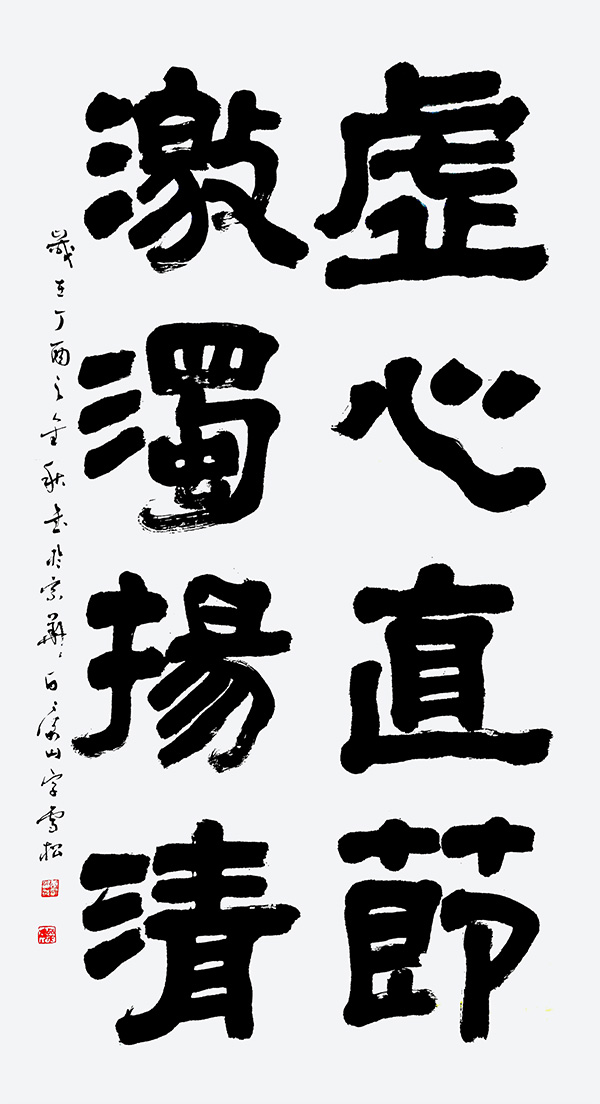 虛心直節
激濁揚清
歲在丁酉之金秋書於京華
山字雪松